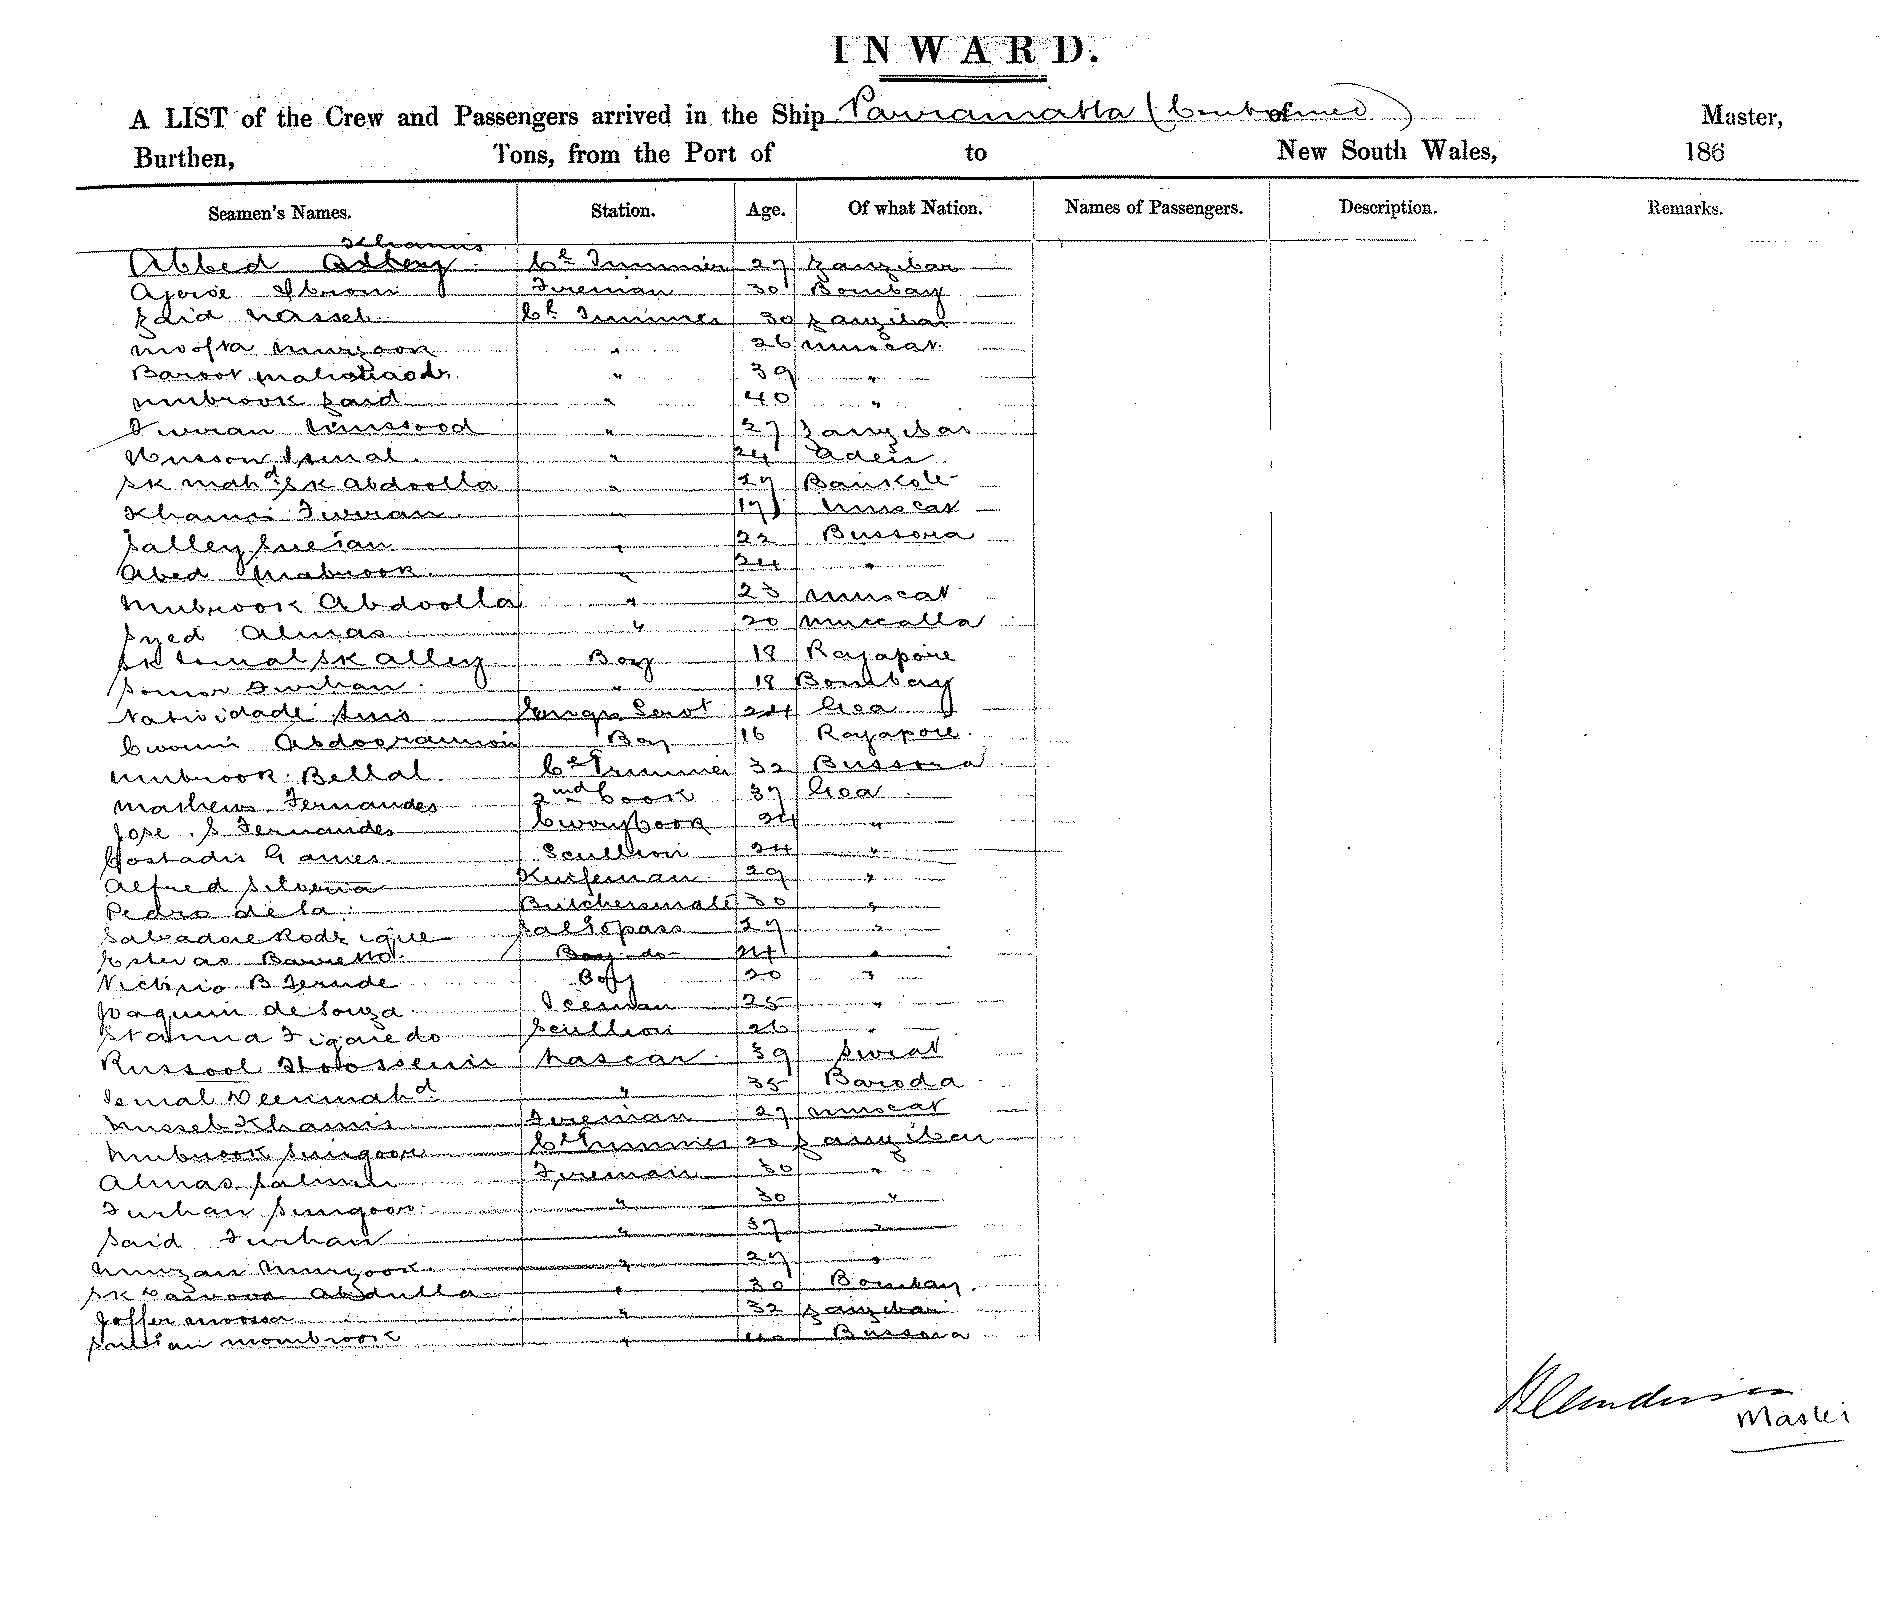 INWARD.
A LIST of the Crew and Passengers arrived in the Ship Parramatta (Continued) of Master,
Burthen, Tons, from the Port of to New South Wales, 186
Seamen's Names. Station. Age. Of what Nation. Names of Passengers. Description. Remarks.
Khamis
Abbed Alley Cl Trimmer 27 Zanzibar
Fireman 30 Bombay
Zaid Nasseb Cl Trimmer 30 Zanzibar
Moofta Murzook " 26 Muscat
Baroot " 39 "
Mubrook Zaid " 40 "
Furran Mussood " 27 Zanzibar
Husson Ismal " 24 Aden
Sk Mahd Sk Abdoolla " 27 Bankote
Khamis Furran " 17 Muscat
Salley Suelan " 22 Bussora
Abed Mabrook " 24 "
Mubrook Abdoolla " 23 Muscat
Syed Almas " 20 Muccalla
Sk Ismal Sk Alley Boy 18 Rajapore
Somor Furhan " 18 Bombay
Natividade Luis 24 Goa
Boy 16 Rajapore
Mubrook Bellal Cl Trimmer 32 Bussora
Mathews Fernandes 2nd Cook 37 Goa
Jose S Fernandes Cook 24 "
Scullion 24 "
Alfred Silveria Knifeman 29 "
Pedro de la Butchersmate 30 "
Salvadore Rodrique 27 "
Estevao Barretto Boy do 24 "
B Fernde Boy 20 "
Joaquim de Souza Iceman 25 "
Figuredo Scullion 26 "
Russool Hoossein Lascar 39 Surat
Ismal Deenmahd " 35 Baroda
Musseb Khamis Fireman 27 Muscat
Mubrook Sungoor Cl Trimmer 20 Zanzibar
Almas Salmin Fireman 30 "
Furhan Sungoor " 30 "
Said Furhan " 37 "
Murzan Murzook " 27 "
Sk Abdulla " 30 Bombay
Joffer Moosa " 32 Zanzibar
Sultan Mombrook " 40 Bussora
Anderson
Master